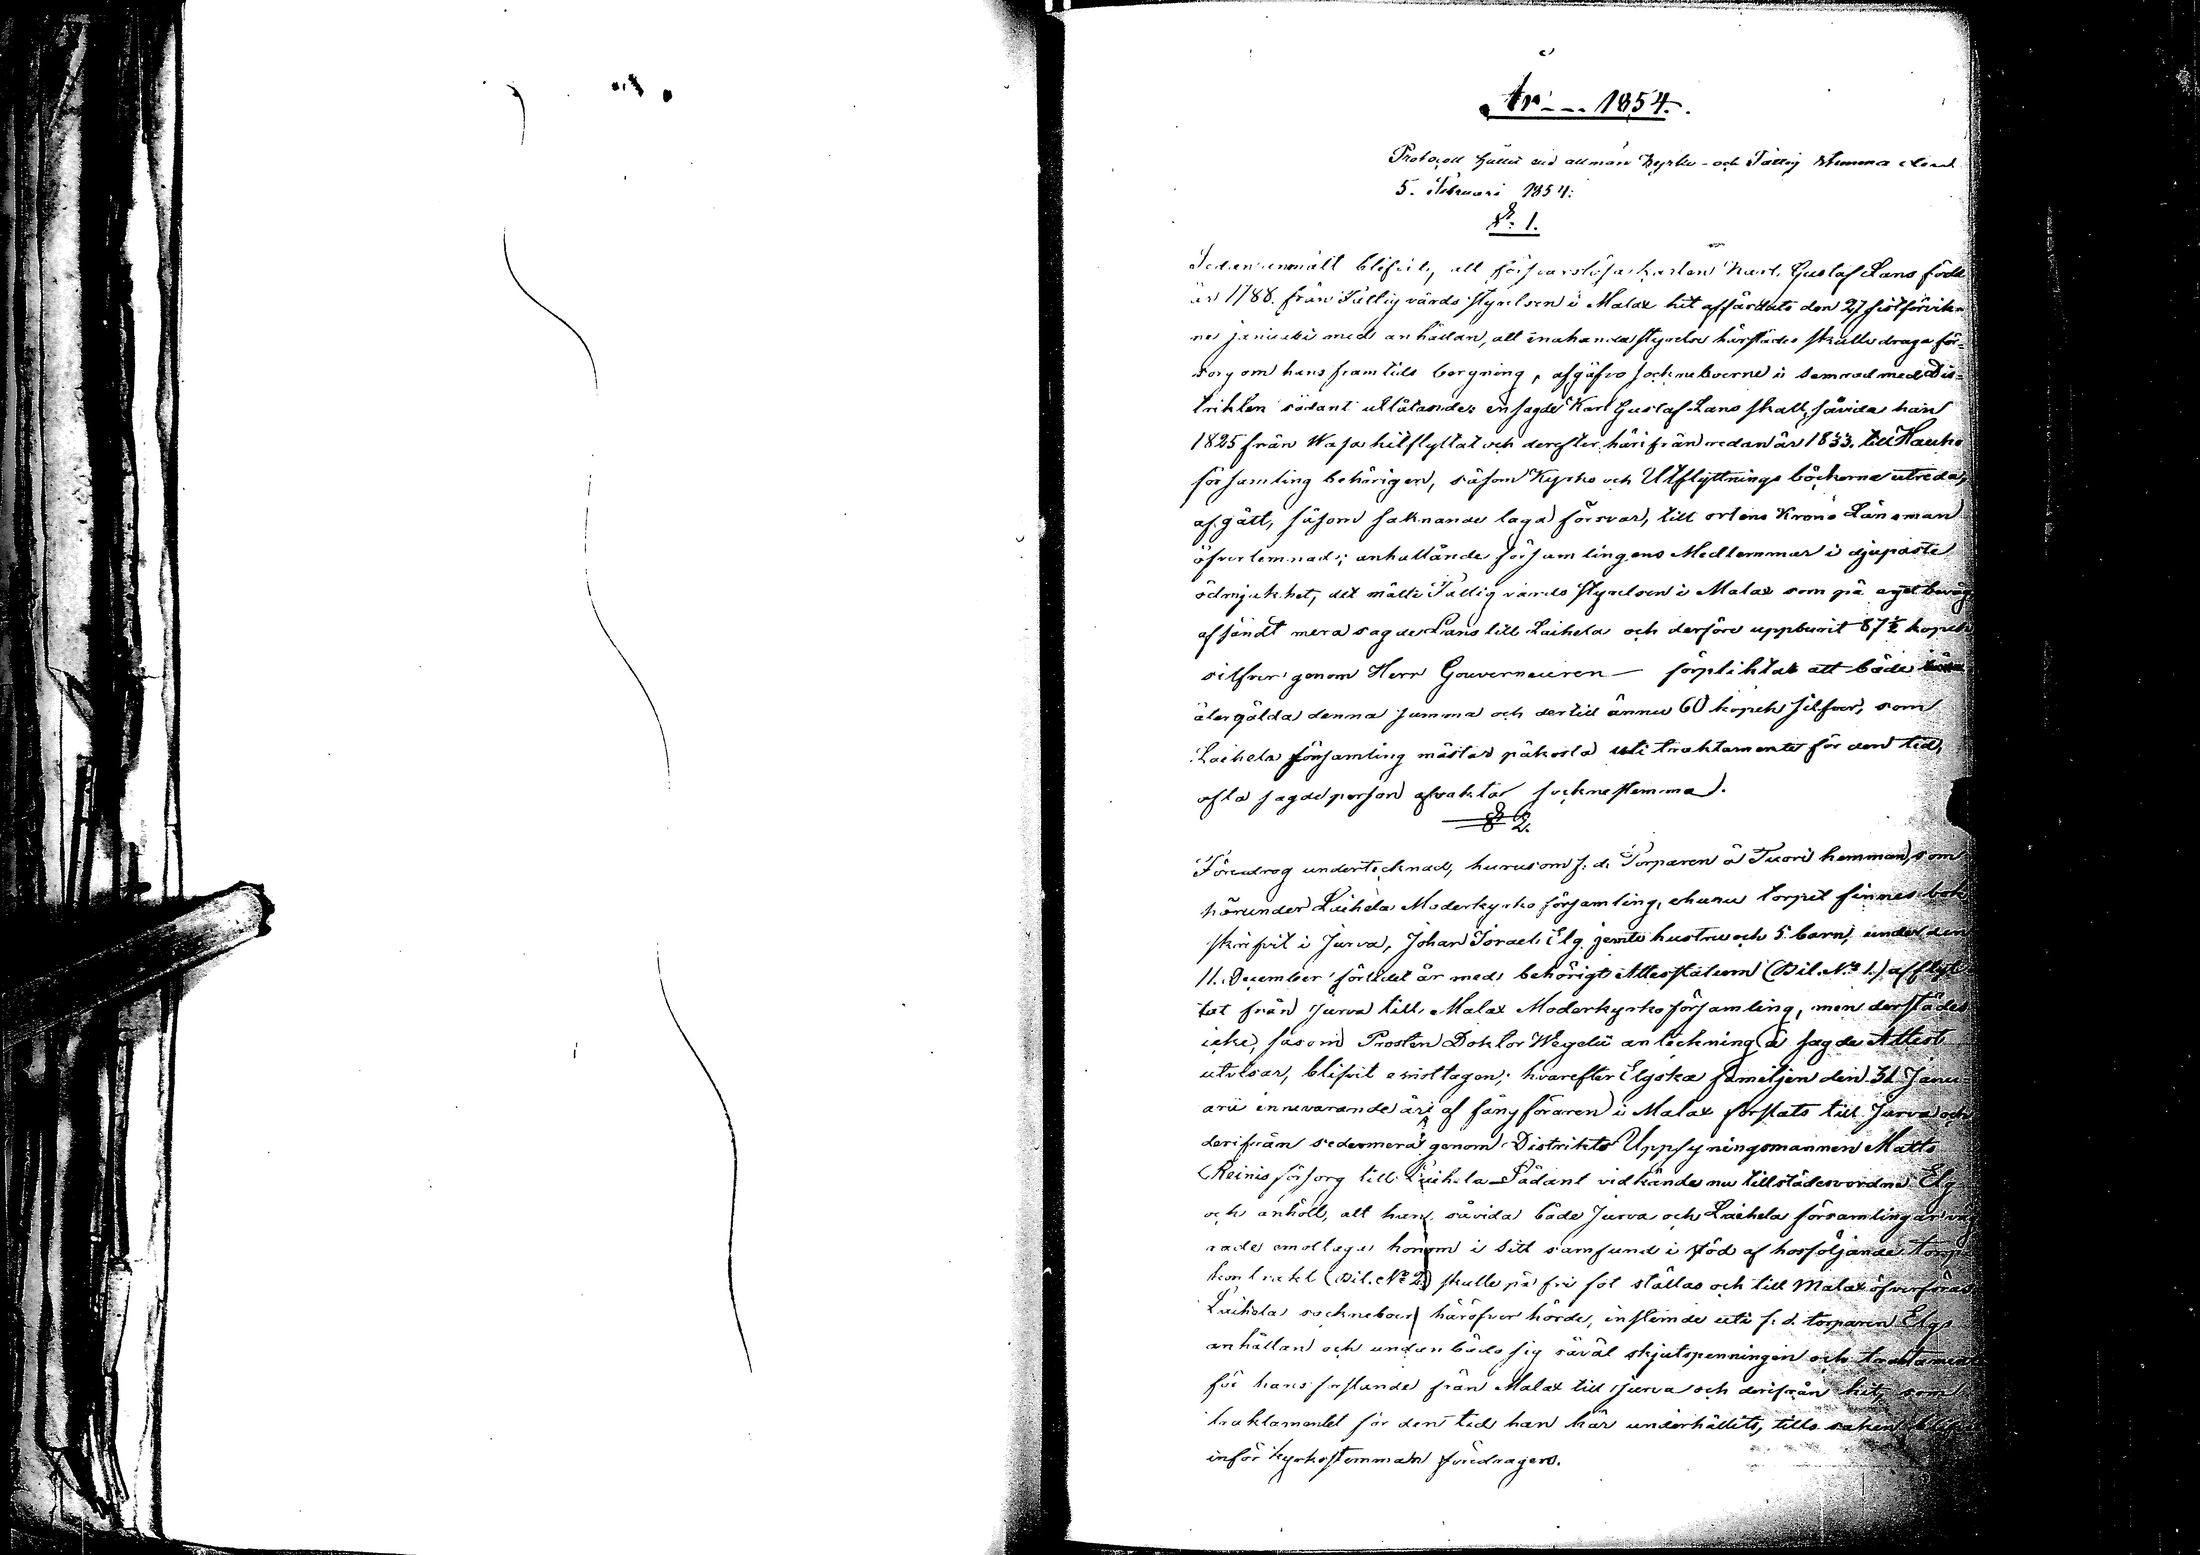 År 1854.
Protocoll hållit vid allmän Kyrko- och Fattig stemma den
5. Februari 1854.
§. 1.
Sedan anmält blifvit, att försvarslösa karlen Karl Gustaf Lans född
år 1788. från Fattigvårds styrelsen i Malax hit affärdats den 27 sistförvik-
ne januarii med anhållan, att enahanda styrelse härstädes skulle draga för-
sorg om hans framtids bergning, afgåfvo sockneboerne i samråd med Dis-
trikten sådant utlåtande: en sagde Karl Gustaf Lans skall, såvida han
1825 från Wasa hitflyttat och derefter härifrån redan år 1833. till Hauho
församling behörigen, såsom Kyrko och Utflyttnings böckerne utreda,
afgått, såsom saknande laga försvar, till ortens Krono Länsman
öfverlemnad; anhållande församlingens Medlemmar i djupaste
ödmjukhet, det måtte Fattigvårds styrelsen i Malax som på eget bevåg
afsändt mera sagde Lans till Laihela och derföre uppburit 87½ kopek
silfver genom Herr Gouverneuren — förpliktas att både
återgälda denna summa och dertill ännu 60 kopek silfver, som
Laihela församling måstat påkosta uti traktamente för den tid,
ofta sagde person afvaktar socknestemma.
§ 2.
Föredrog undertecknad, hurusom f. d. Torparen å Tuori hemman, som
hörunder Laihela Moderkyrko församling, ehuru torpet finnes bok
skrifvit i Jurva, Johan Israel Elg jemte hustru och 5 barn, under den
11. December förledet år med behörigt Attestatum (Bil. No 1.) afflyt-
tat från Jurva till Malax Moderkyrko församling, men derstädes
icke, såsom Prosten Doktor Wegelii anteckning å sagde Attest
utvisar, blifvit emottagen; hvarefter Elgska familjen den 31 Janu-
arii innevarande år af fångföraren i Malax forslats till Jurva och
derifrån sedermera genom Distrikts Uppsyningsmannen Matts
Reinis försorg till Laihela. Sådant vidkände nu tillstädesvordne Elg
och anhöll, att han, såvida både Jurva och Laihela församlingar väg
rade emottaga honom i sitt samfund i stöd af hosföljande torp
kontrakt (Bil. No 2.) skulle på fri fot ställas och till Malax öfverföras
Laihela sockneboer häröfver hörde, instemde uti f. d. torparen Elgs
anhållan och undanbådo sig såväl skjutspenningen och traktament
för hans forslande från Malax till Jurva och derifrån hit, som
traktamentet för den tid han här underhållits, tills saken blifvit
inför kyrkostemman föredragen.